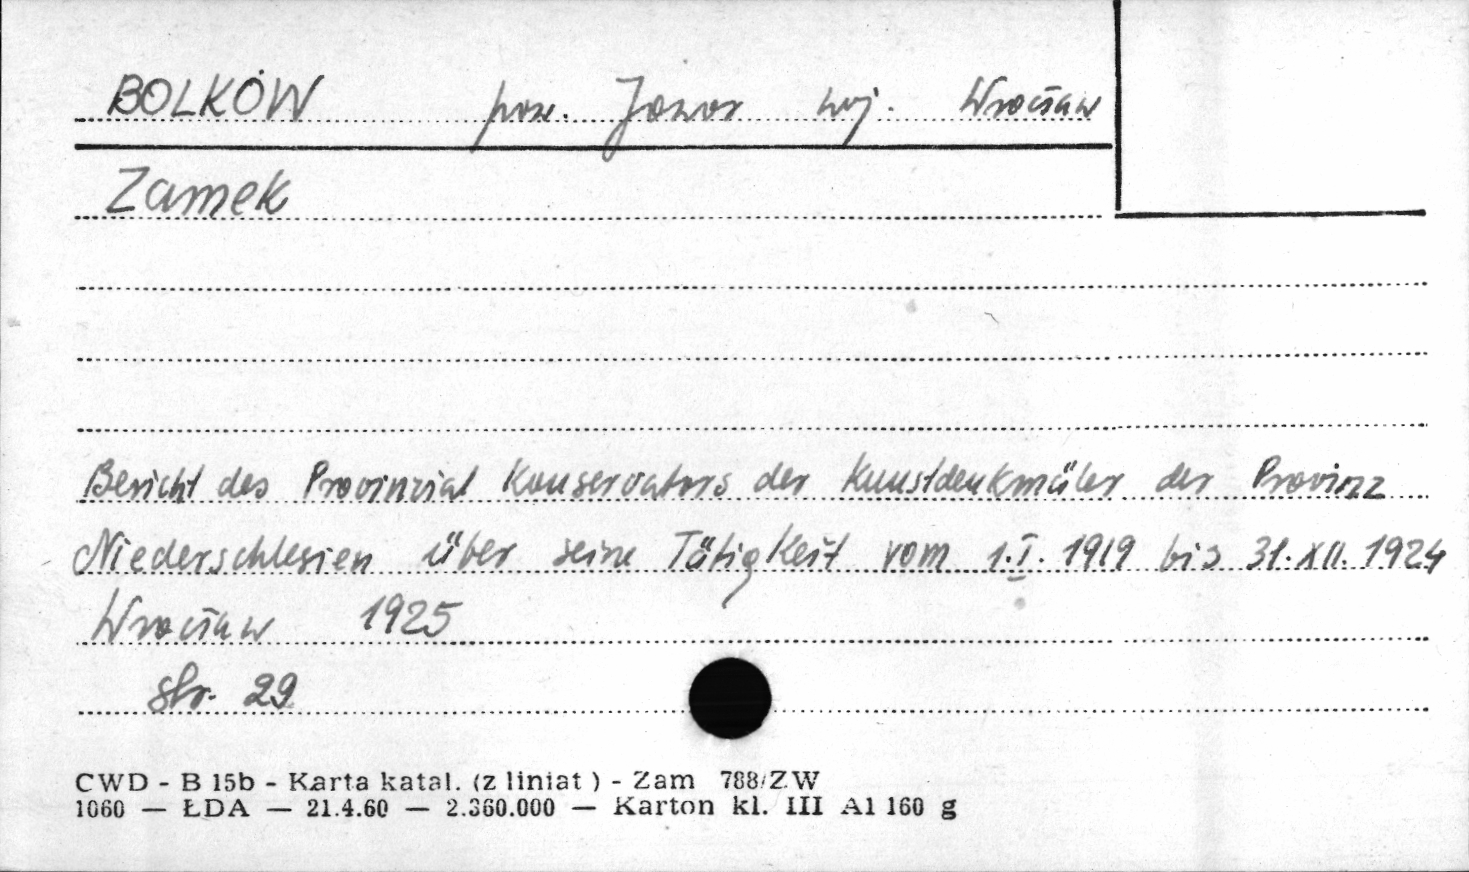 BOLKÓW pow. Jawor woj. Wrocław
Zamek
Bericht des Provinzial Konservators der Kunstdenkmäler der Provinz
Niederschlesien über seine Tätigkeit vom 1.I. 1919 bis 31.XII. 1924
Wrocław 1925
str. 29
CWD - B 15b - Karta katal. (z liniat ) - Zam 788/ZW
1060 — ŁDA — 21.4.60 — 2.360.000 — Karton kl. III A1 160 g